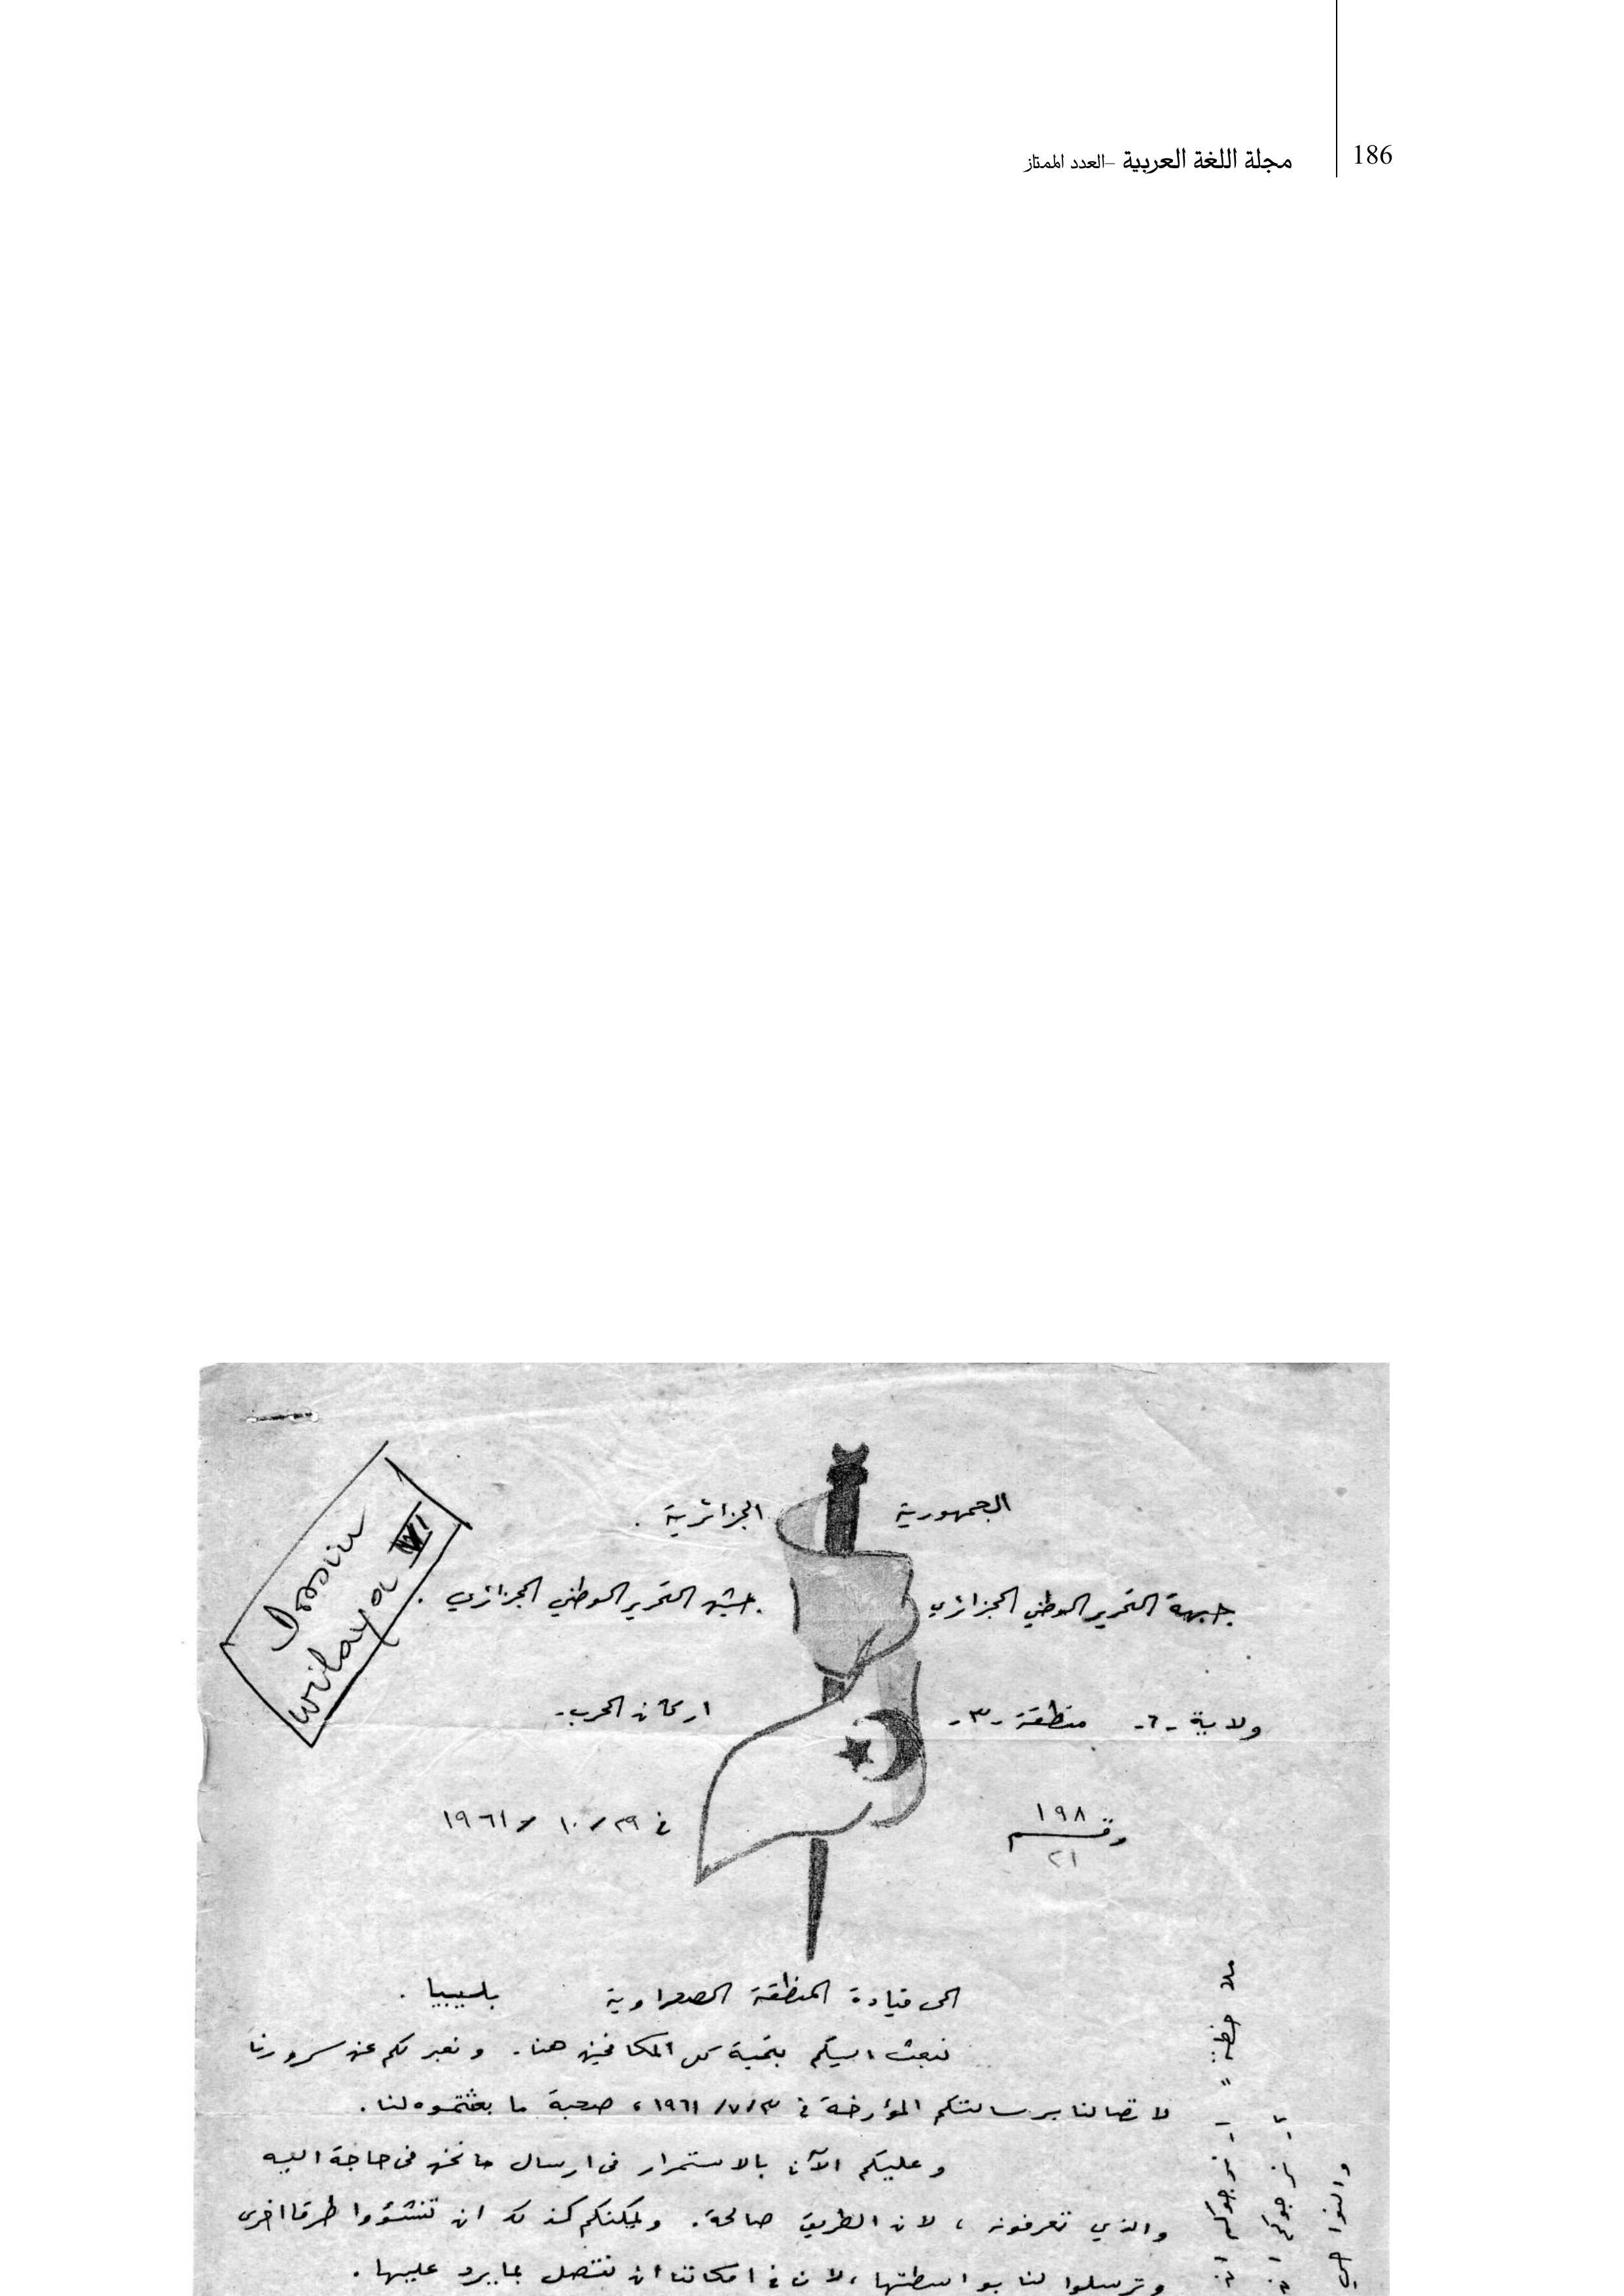 186
مجلة اللغة العربية –العدد الممتاز
Dessin
wilaya VI
الجمهورية الجزائرية .
جبهة التحرير الوطني الجزائري جيش التحرير الوطني الجزائري .
ولاية -٦- منطقة -٣- اركان الحرب-
رقم ١٩٨ في ٢٩/ ١٠/ ١٩٦١
٢١
الى قيادة المنطقة الصحراوية بليبيا .
نبعث اليكم بتحية كل المكافحين هنا. ونعبر لكم عن سرورنا
لاتصالنا برسالتكم المؤرخة في ٣/ ٧/ ١٩٦١، صحبة ما بعثتموه لنا .
وعليكم الآن بالاستمرار في ارسال ما نحن في حاجة اليه
والذي تعرفونه ، لان الطريق صالحة. ويمكنكم كذلك ان تنشؤوا طرقا اخرى
وترسلوا لنا بواسطتها ، لان في امكاننا ان نتصل بما يرد عليها .
ملاحظة :
١- نرجوكم
٢- نرجوكم
والنواحي